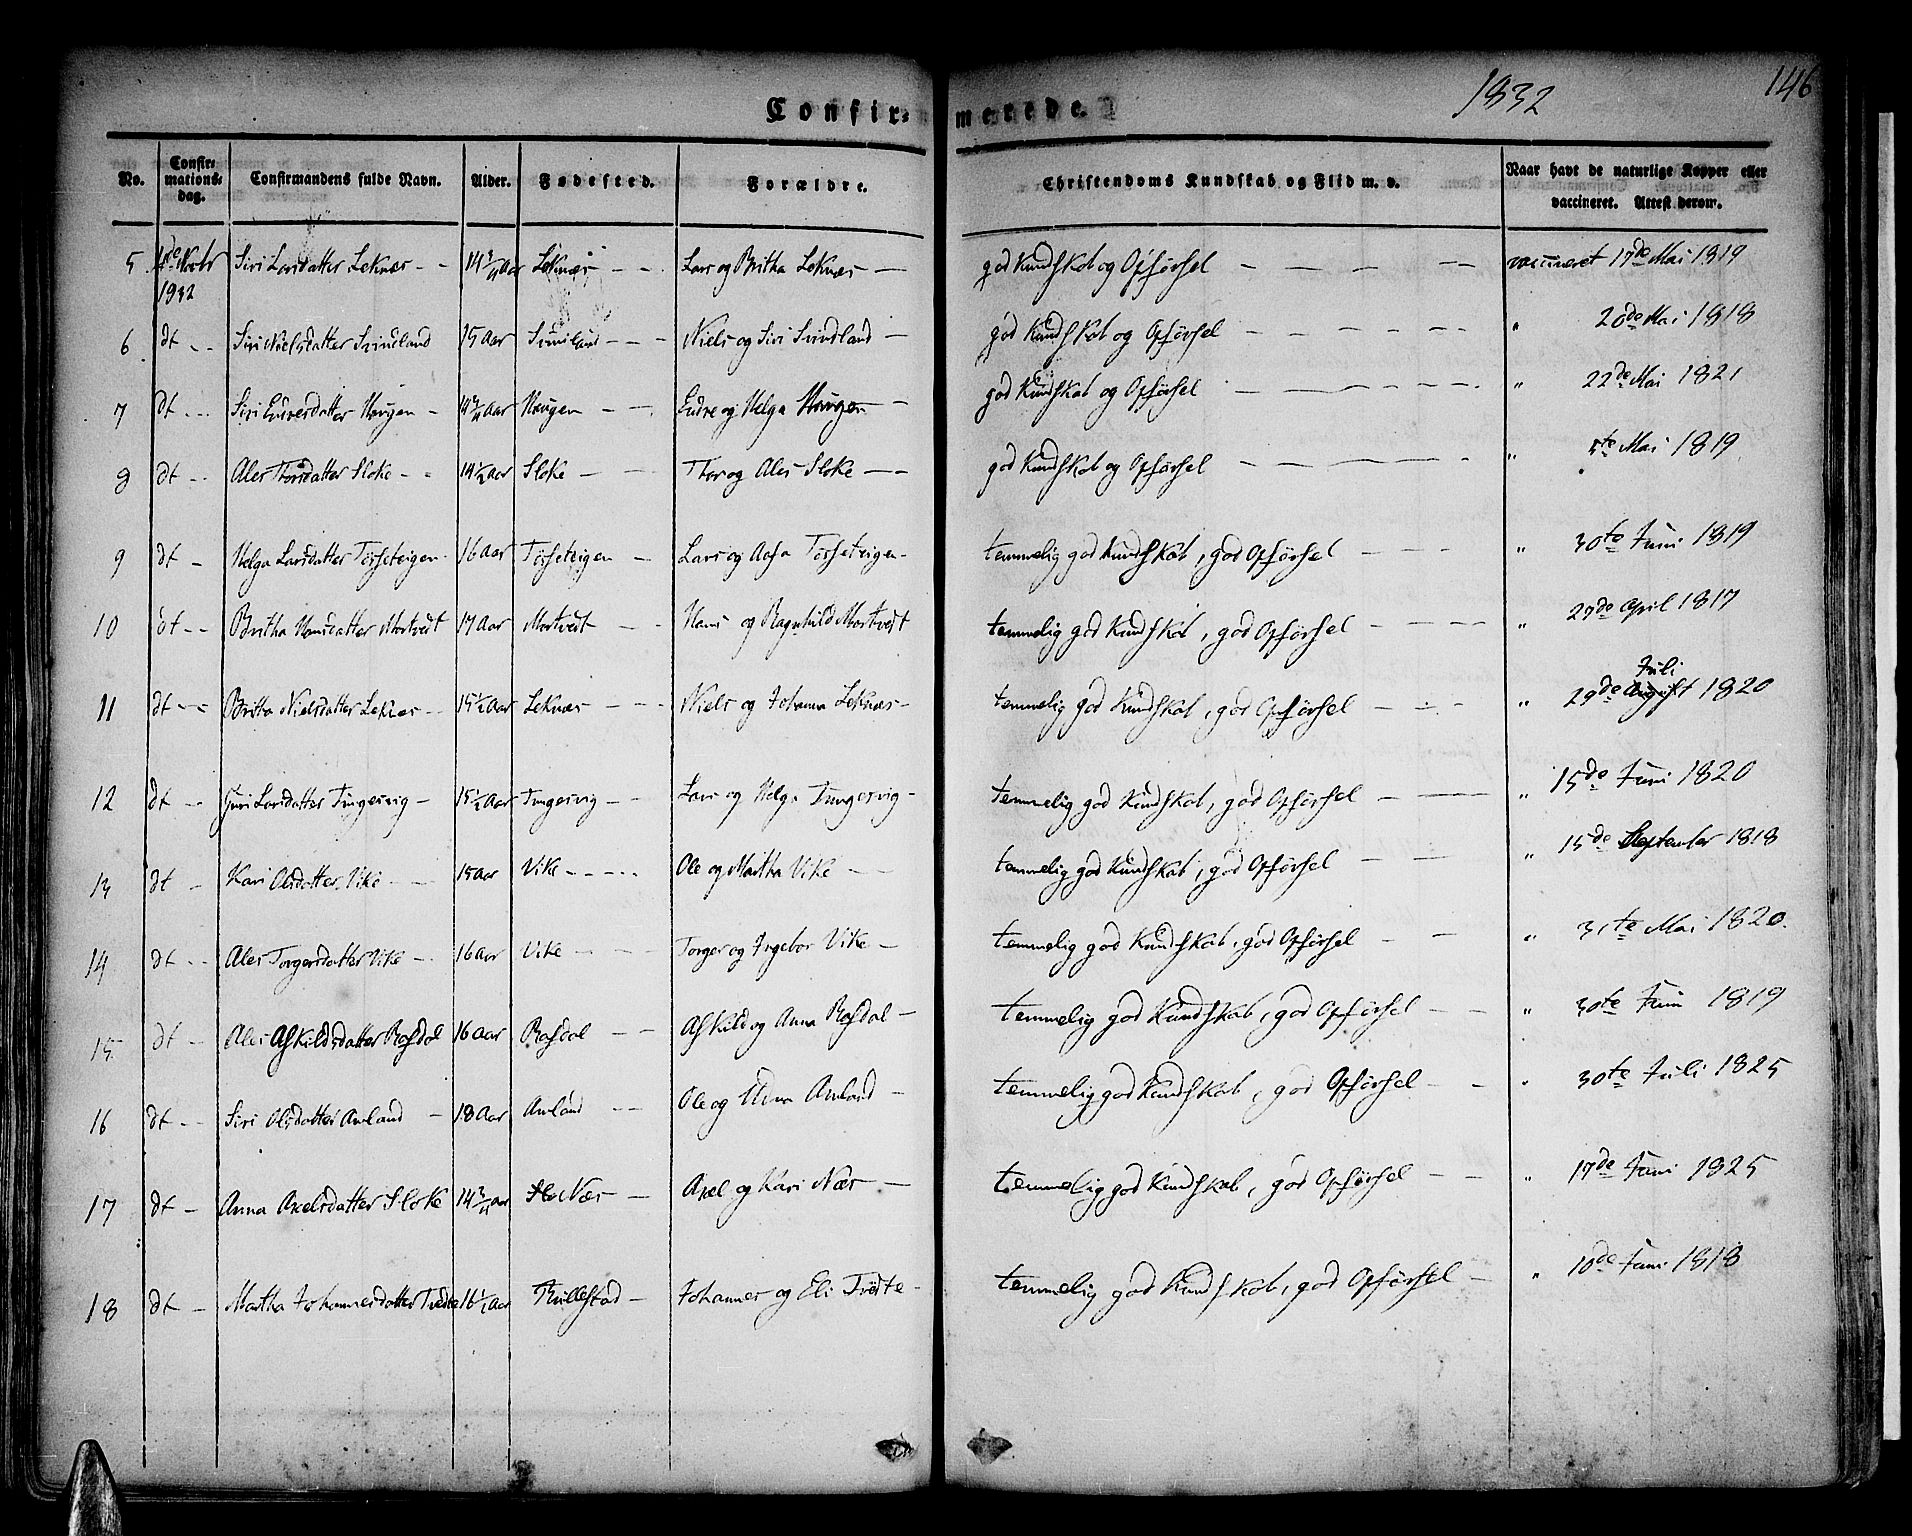 1832
146
Confirmerede.
No. Confirmations-dag. Confirmandens fulde Navn. Alder. Fødested. Forældre. Christendoms Kundskab og Flid m. v. Naar havt de naturlige Kopper eller vaccineret. Attest derom.
5 1832 Siri Larsdatter Leknæs 14 3/4 Aar Leknæs Lars og Britha Leknæs god Kundskab og Opførsel vaccineret 17de Mai 1819
6 dt Siri Nielsdatter Svindland 15 Aar Svindland Niels og Siri Svindland god Kundskab og Opførsel " 20de Mai 1818
7 dt Siri Endresdatter Haugen 14 3/4 Aar Haugen Endre og Helga Haugen god Kundskab og Opførsel " 22de Mai 1821
8 dt Ales Thorsdatter Sloke 14 1/2 Aar Sloke Thor og Ales Sloke god Kundskab og Opførsel " 5te Mai 1819
9 dt Helga Larsdatter Tøsseteigen 16 Aar Tøsseteigen Lars og Aasa Tøsseteigen temmelig god Kundskab, god Opførsel " 30te Juni 1819
10 dt Britha Hansdatter Mortveit 17 Aar Mortveit Hans og Ragnhild Mortveit temmelig god Kundskab, god Opførsel " 27de April 1817
11 dt Britha Nielsdatter Leknæs 15 1/2 Aar Leknæs Niels og Johanna Leknæs temmelig god Kundskab, god Opførsel " 29de August Juli 1820
12 dt Guri Larsdatter Tungesvig 15 1/2 Aar Tungesvig Lars og Helga Tungesvig temmelig god Kundskab, god Opførsel " 15de Juni 1820
13 dt Kari Olsdatter Vike 15 Aar Vike Ole og Martha Vike temmelig god Kundskab, god Opførsel " 15de September 1818
14 dt Ales Torgersdatter Vike 16 Aar Vike Torger og Ingebor Vike temmelig god Kundskab, god Opførsel " 31te Mai 1820.
15 dt Ales Askildsdatter Rafdal 16 Aar Rafdal Askild og Anna Rafdal temmelig god Kundskab, god Opførsel " 30te Juni 1819
16 dt Siri Olsdatter Amland 18 Aar Amland Ole og Anna Amland temmelig god Kundskab, god Opførsel " 30te Juli 1825
17 dt Anna Axelsdatter Sloke 14 3/4 Aar Næs Axel og Kari Næs temmelig god Kundskab, god Opførsel " 17de Juni 1825
18 dt Martha Johannesdatter Tvedte 16 1/2 Aar Rullestad Johannes og Eli Tvedte temmelig god Kundskab, god Opførsel " 10de Juni 1818